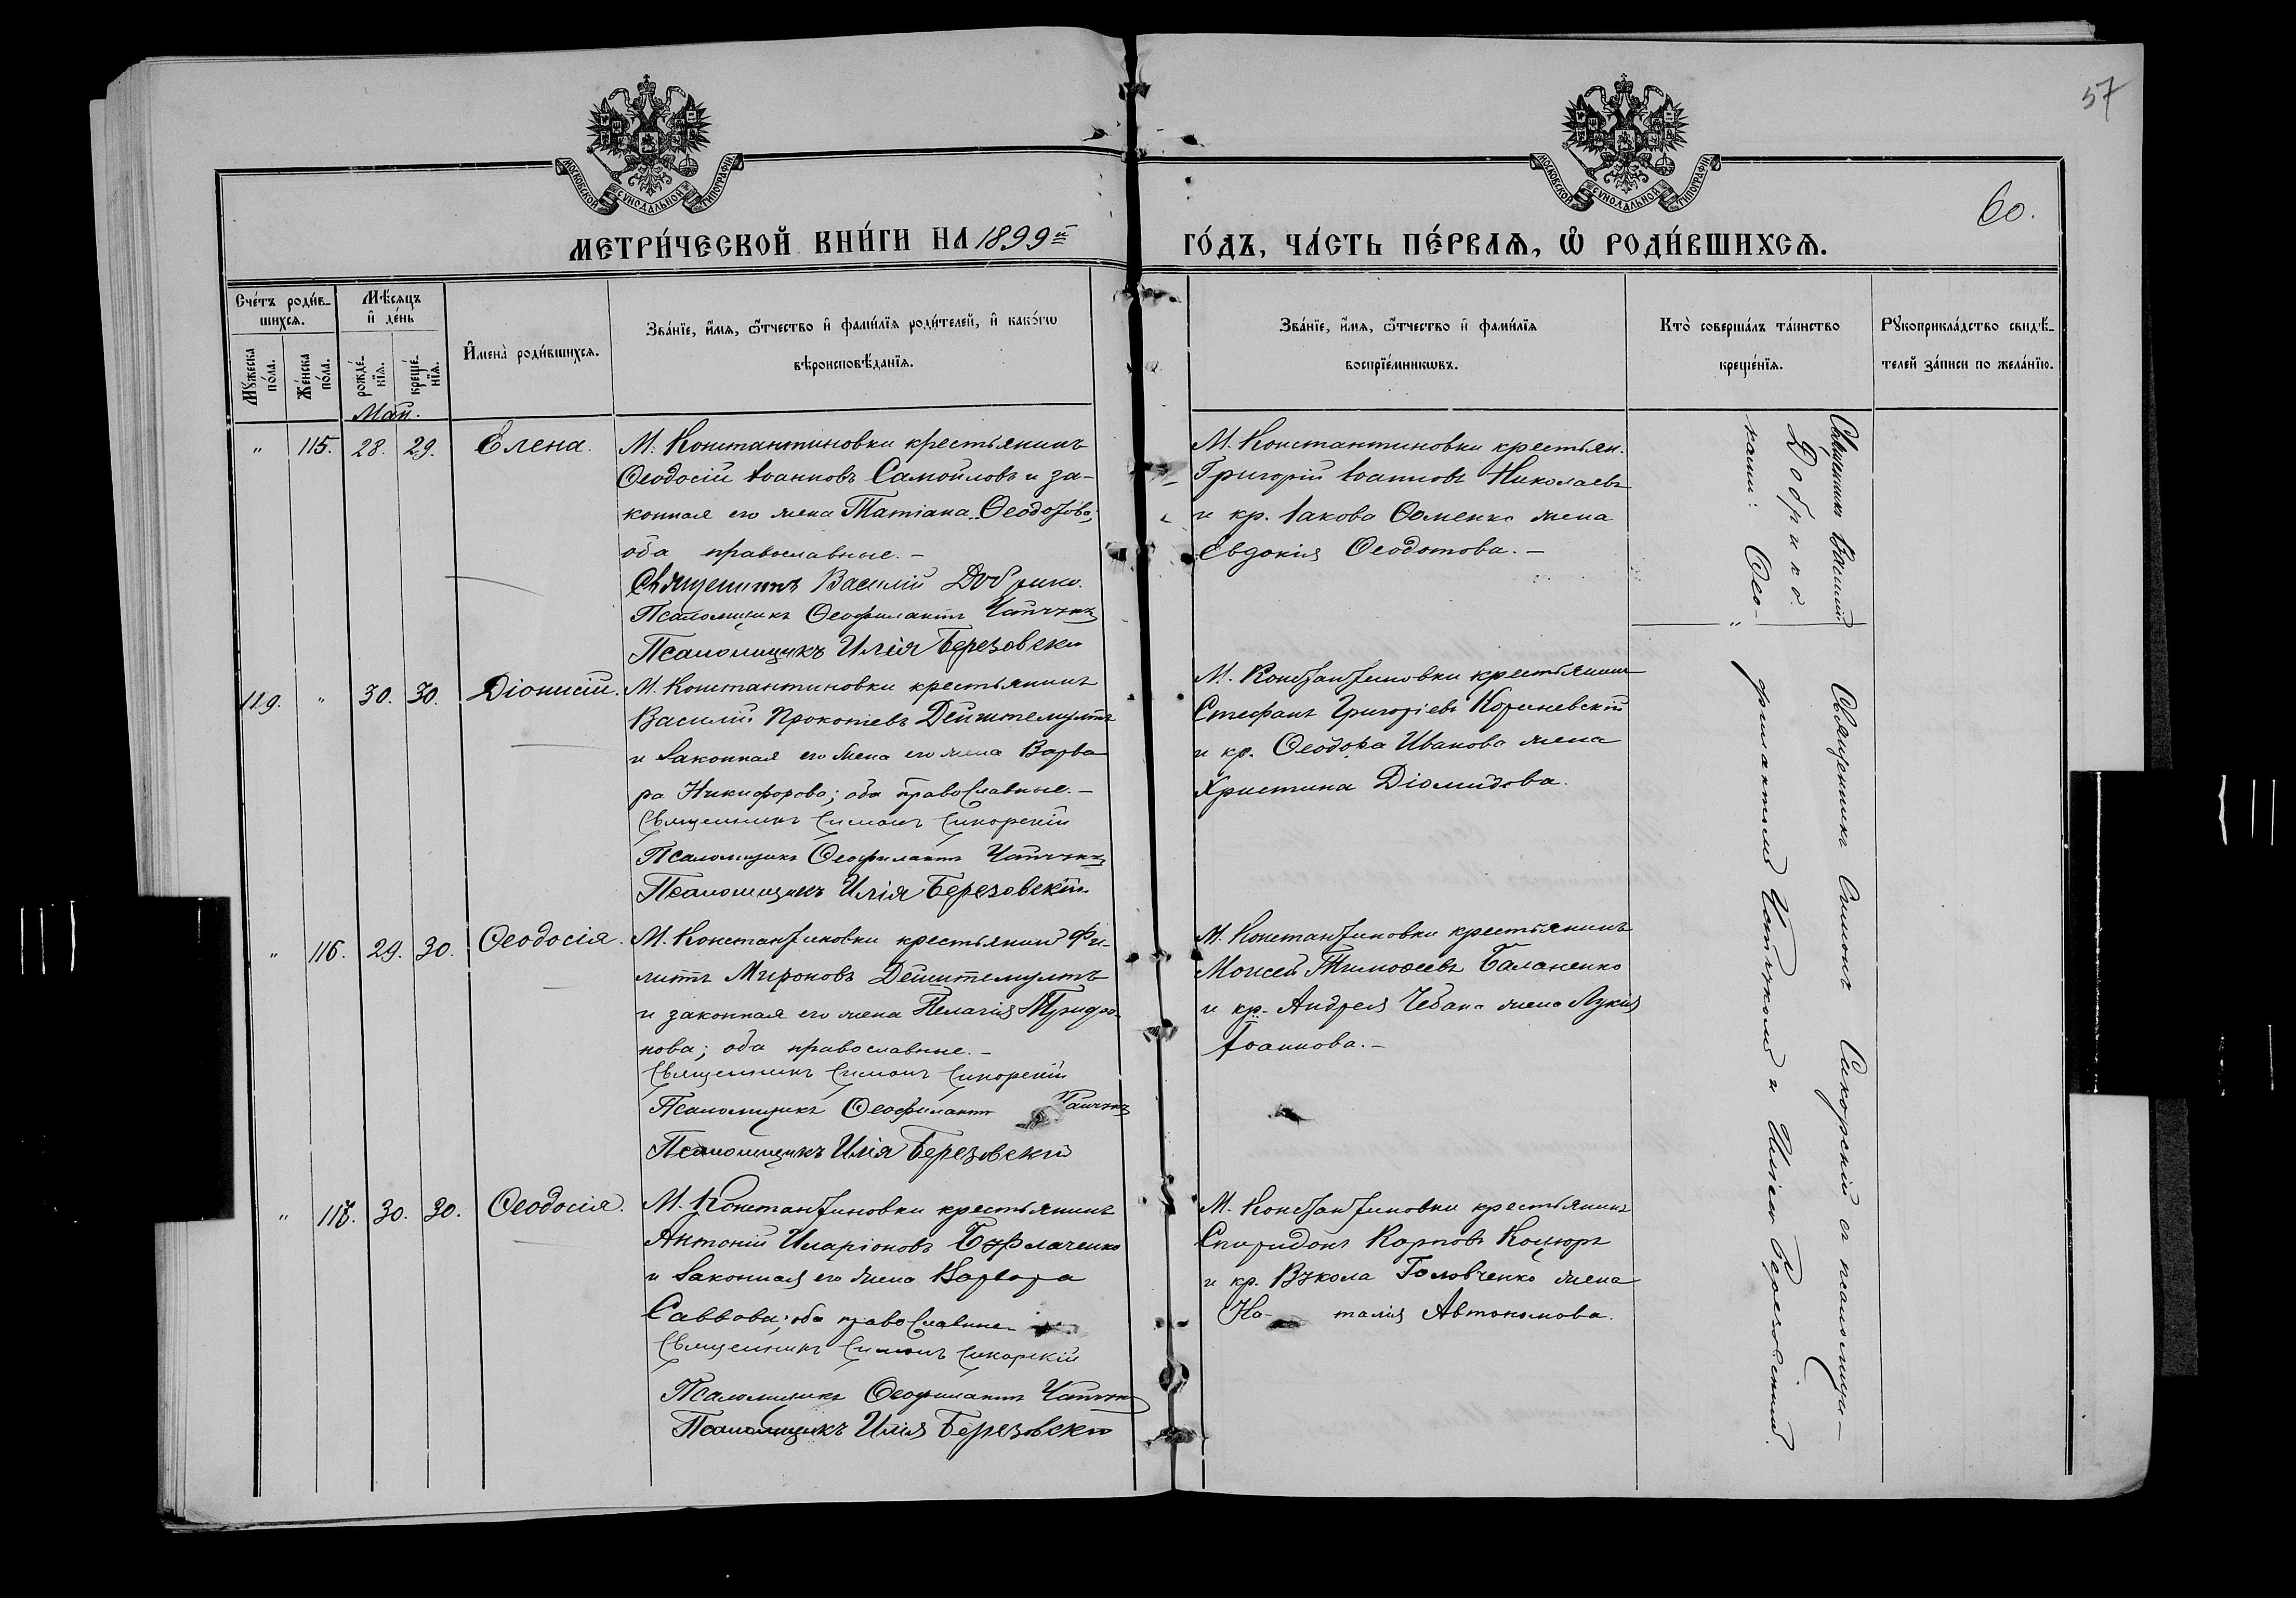 57
60.
МОСКОВСКОЙ СѴНОДАЛЬНОЙ ТИПОГРАФІИ
МОСКОВСКОЙ СѴНОДАЛЬНОЙ ТИПОГРАФІИ
МЕТРИ́ЧЕСКОЙ КНИ́ГИ НА 1899й ГО́ДЪ, ЧА́СТЬ ПЕ́РВАѦ, Ѡ҆ РОДИ́ВШИХСѦ.
Сче́тъ роди́в-
шихсѧ.
Мꙋ́жеска по́ла.
Же́нска по́ла.
Мѣ́сѧцъ
и҆ де́нь
рожде́-
нїѧ.
креще́-
нїѧ.
И҆мена̀ роди́вшихсѧ.
Зва́нїе, и҆́мѧ, ѻ҆́тчество и҆ фами́лїѧ роди́телей, и҆ како́гѡ
вѣроисповѣ́данїѧ.
Зва́нїе, и҆́мѧ, ѻ҆́тчество и҆ фами́лїѧ
воспрїе́мникѡвъ.
Кто̀ соверша́лъ та́инство
креще́нїѧ.
Рꙋкоприкла́дство свидѣ́-
телей за́писи по жела́нїю.
Май.
" 115. 28. 29. Елена.
М. Константиновки крестьянинъ
Ѳеодосій Іоанновъ Самойловъ и за-
конная его жена Татіана Ѳеодорова;
оба православные. –
Священникъ Василій Добрико.
Псаломщикъ Ѳеофилактъ
Псаломщикъ Илія Березовскій
М. Константиновки крестьян.
Григорій Іоанновъ Николаевъ
и кр. Іакова Ѳоменко жена
Евдокія Ѳеодотова. –
Священникъ Василій
Добрико.
119. " 30. 30. Діонисій.
М. Константиновки крестьянинъ
Василій Прокопіевъ
и законная его жена его жена Варва
ра Никифорова; оба православные. –
Священникъ Симонъ Сикорскій
Псаломщикъ Ѳеофилактъ
Псаломщикъ Илія Березовскій
М. Константиновки крестьянинъ
Стефанъ Григоріевъ Кориневскій
и кр. Ѳеодора Иванова жена
Христина Діомидова.
" 116. 29. 30. Ѳеодосія.
М. Константиновки крестьянинъ Фи-
липпъ Мироновъ
и законная его жена Пелагія Трифо-
нова; оба православные. –
Священникъ Симонъ Сикорскій
Псаломщикъ Ѳеофилактъ
Псаломщикъ Илія Березовскій
М. Константиновки крестьянинъ
Моисей Тимоѳеевъ Баланенко
и кр. Андрея Чебана жена Лукія
Іоаннова. –
" 117. 30. 30. Ѳеодосія.
М. Константиновки крестьянинъ
Антоній Иларіоновъ Бурлаченко
и законная его жена Варвара
Саввова; оба православные
Священникъ Симонъ Сикорскій
Псаломщикъ Ѳеофилактъ
Псаломщикъ Илія Березовскій
М. Константиновки крестьянинъ
Спиридонъ Карповъ Коцюръ
и кр. Вукола Головченко жена
На- талія Автономова.
Священникъ Симонъ Сикорскій съ псаломщи-
ками: Ѳео-
филактомъ и Иліею Березовскимъ.